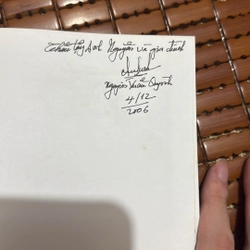 tặng Anh Nguyên và gia đình
Nguyễn Xuân Quỳnh
4/12
2006